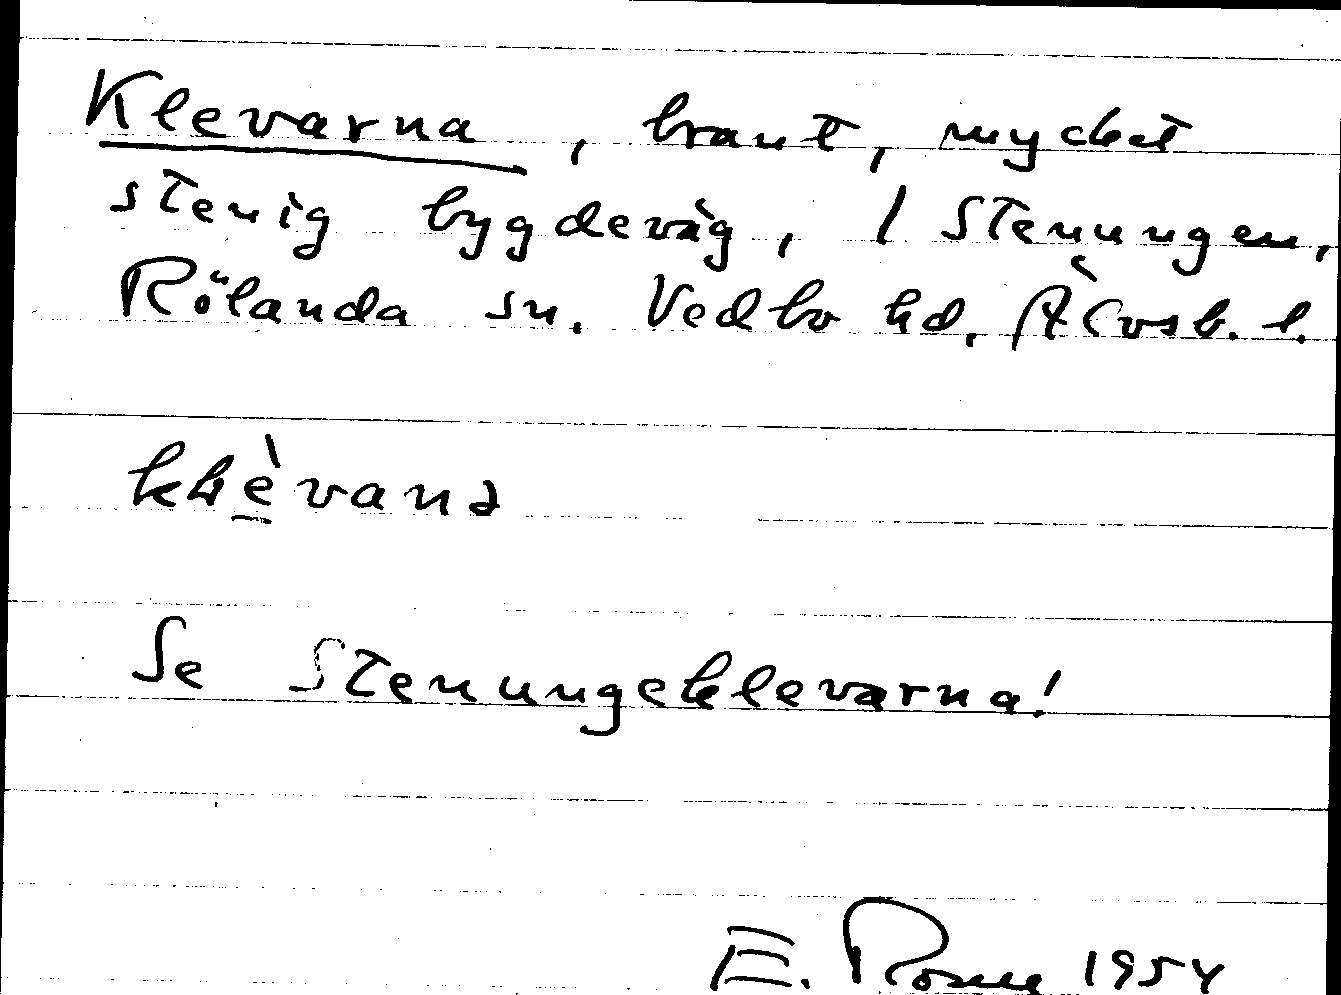 Klevarna, brant, mycket
stenig bygdeväg, i Stenungen,
Rölanda sn. Vedbo hd. Älvsb. l.
Se Stenungeklevarna!
E. 1954